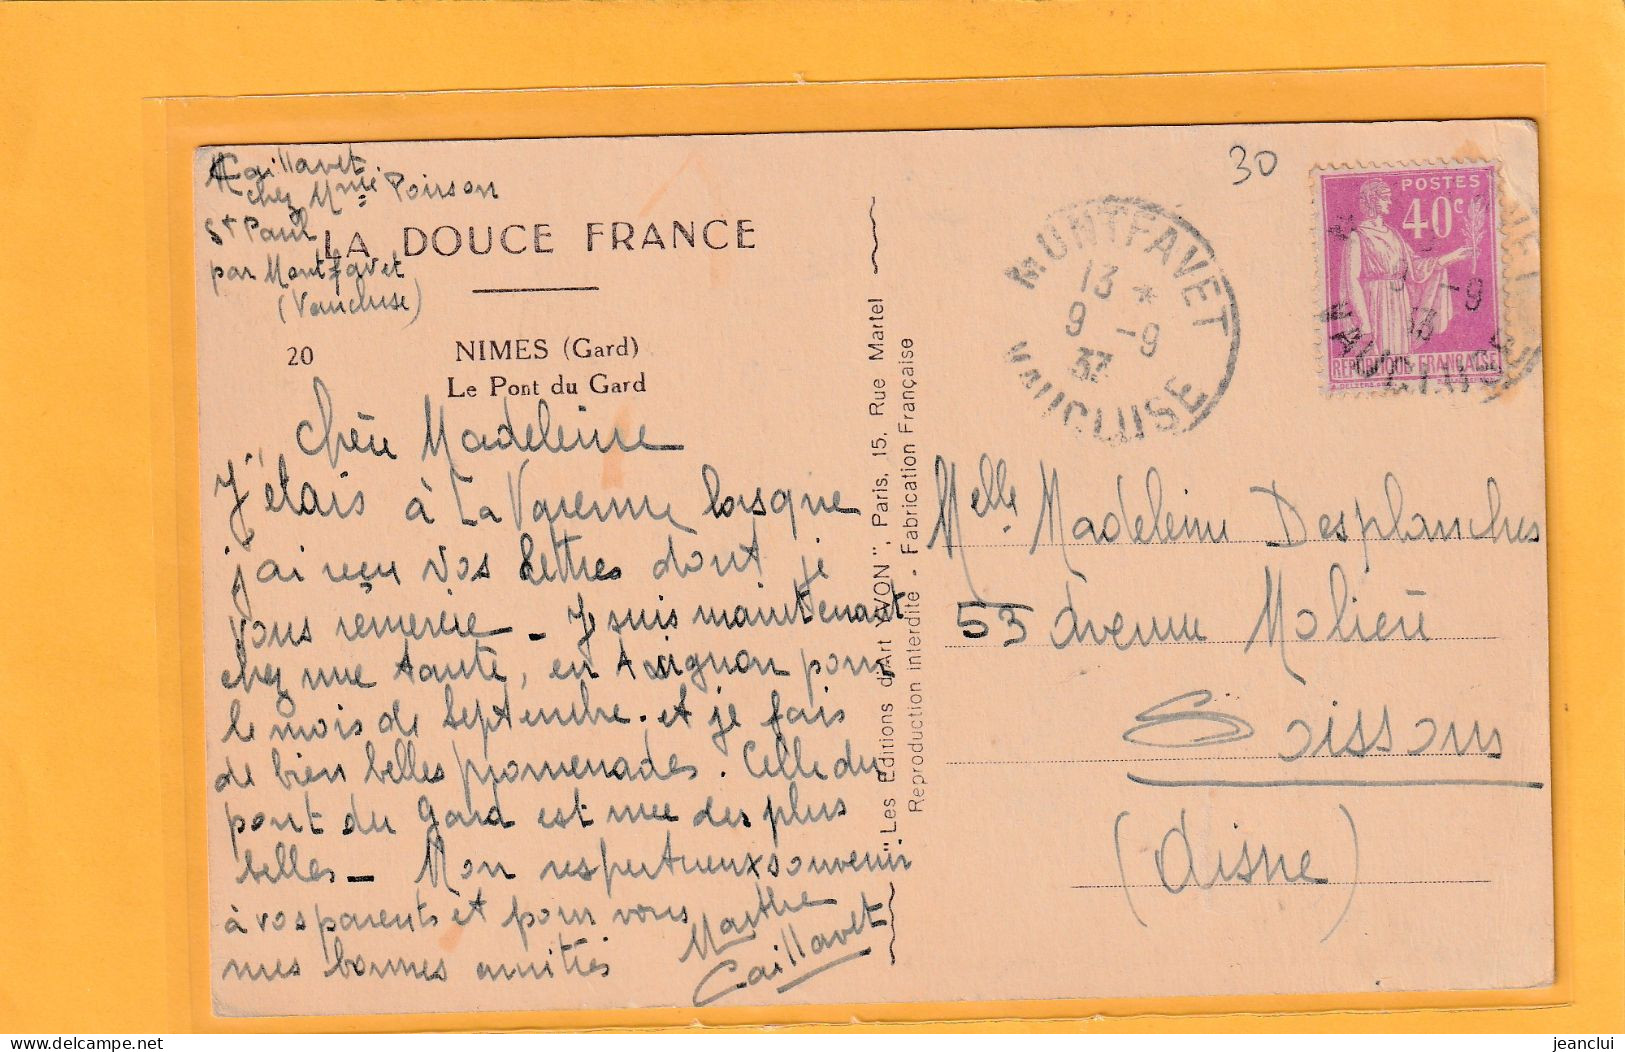 M Caillavet
chez Mme Poirson
St Paul
par Montfavet
(Vaucluse)
LA DOUCE FRANCE
20
NIMES (Gard)
Le Pont du Gard
Chère Madeleine
J'étais à La Varenne lorsque
j'ai reçu vos lettres dont je
vous remercie _ Je suis maintenant
chez une tante, en Avignon pour
le mois de Septembre. et je fais
de bien belles promenades. Celle du
pont du Gard est une des plus
belles _ Mon respectueux souvenir
à vos parents et pour vous
mes bonnes amitiés
Marthe
Caillavet
"Les Editions d'Art YVON", Paris, 15, Rue Martel
Reproduction interdite - Fabrication Française
30
MONTFAVET
13 *
9 -9
33
VAUCLUSE
POSTES
40c
REPUBLIQUE FRANÇAISE
-9
33
VAUCLUSE
Melle Madeleine Desplanches
53 avenue Molière
Soissons
(Aisne)
jeanclui